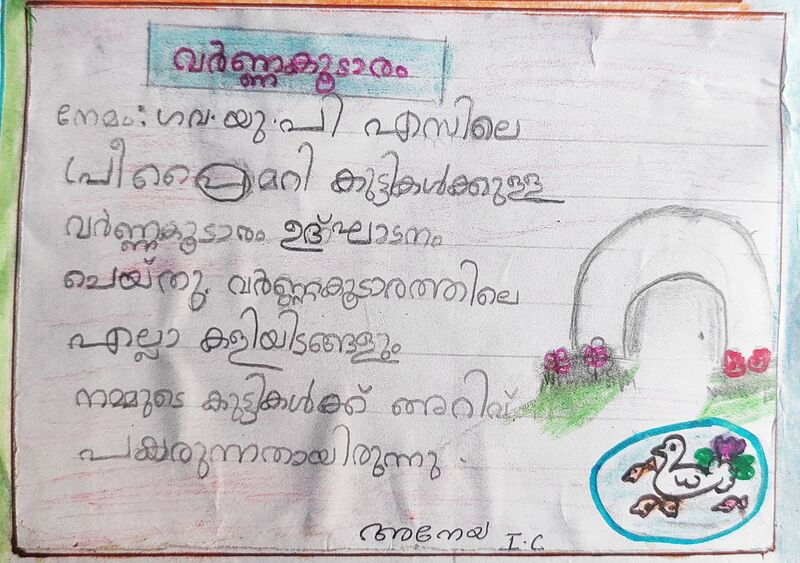 വർണ്ണകൂടാരം
നേമം: ഗവ.യു.പി എസിലെ
പ്രീ പ്രൈമറി കുട്ടികൾക്കുള്ള
വർണ്ണകൂടാരം ഉദ്ഘാടനം
ചെയ്തു. വർണ്ണകൂടാരത്തിലെ
എല്ലാ കളിയിടങ്ങളും
നമ്മുടെ കുട്ടികൾക്ക് അറിവ്
പകരുന്നതായിരുന്നു.
അനേയ I.C